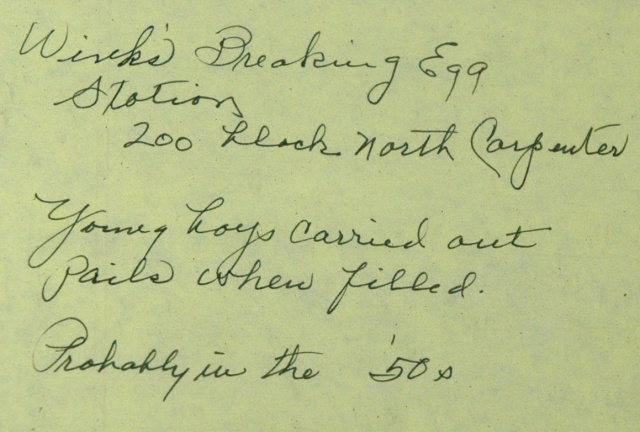 Wink's Breaking Egg
Station
200 block North Carpenter
Young boys carried out
pails when filled.
Probably in the '50s